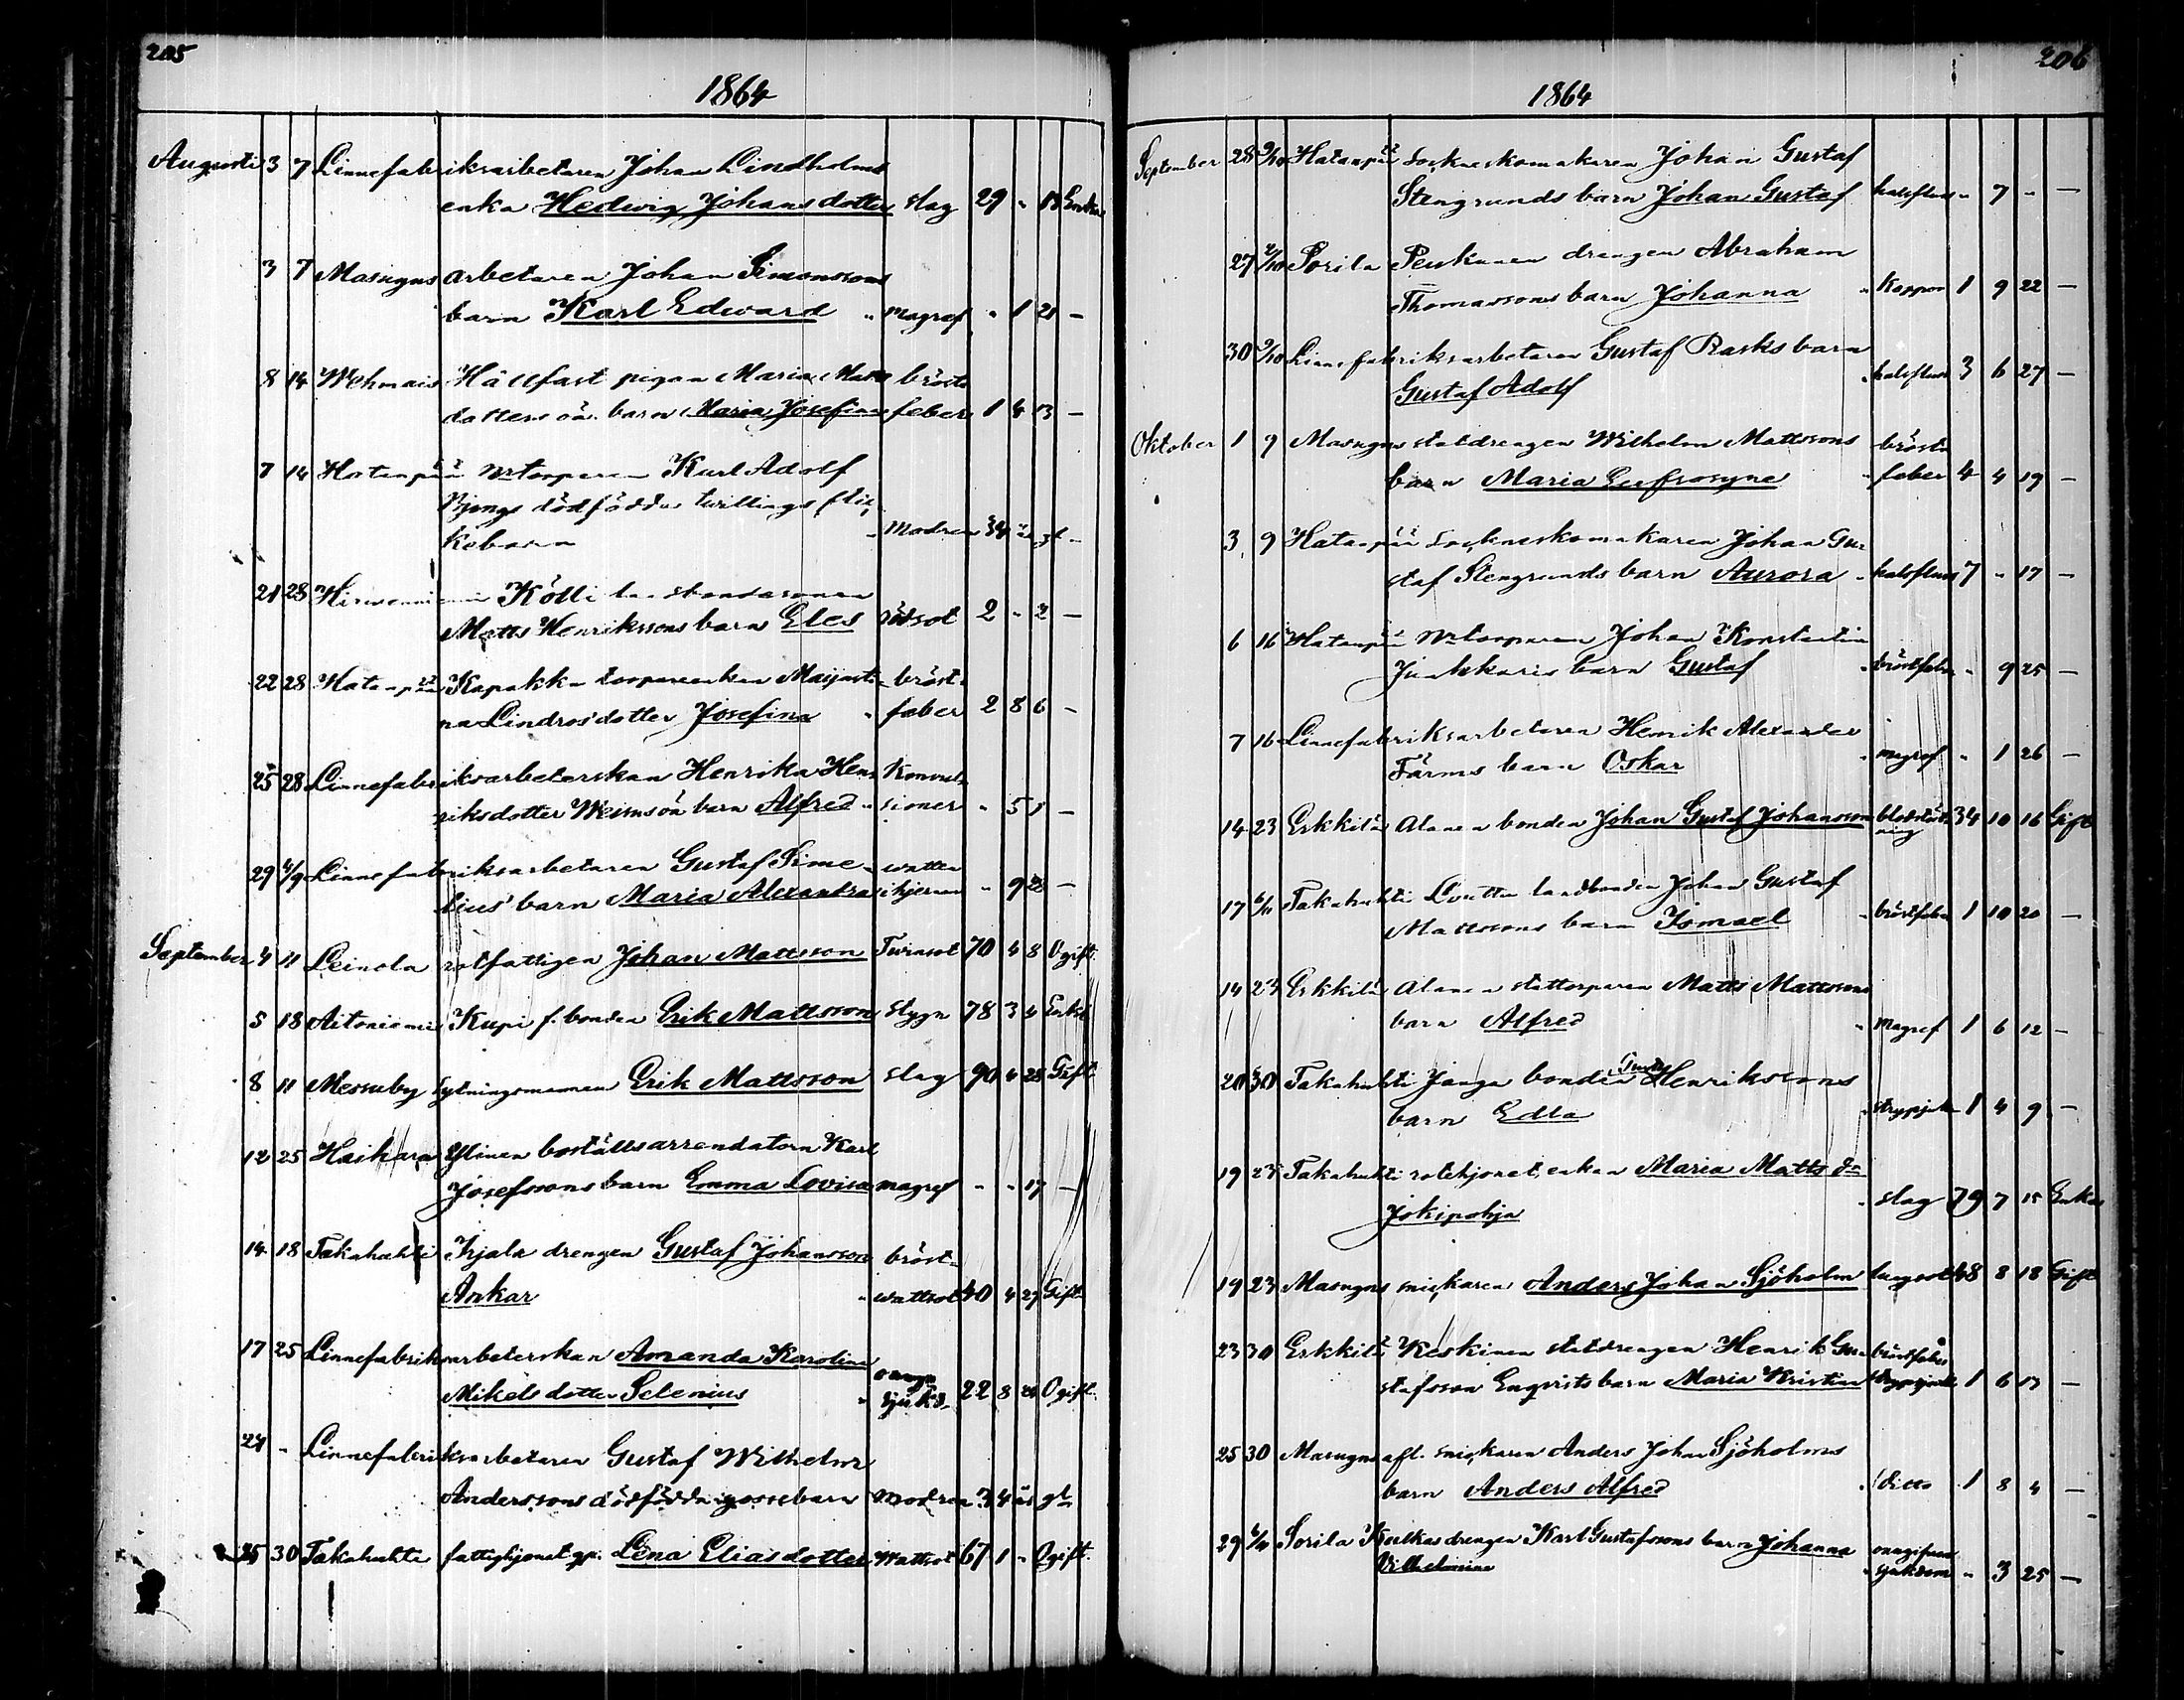 205
1864
Augusti 3 7 Linnefabriksarbetaren Johan Lindholms
enka Hedwig Johansdotter slag 29 - 18 Enka
3 7 Masugns arbetaren Johan Simonssons
barn Karl Edward " magref " 1 21 —
8 14 Wehmais Hällfast pigan Maria Matts bröst-
dotters oä. barn Maria Josefina feber 1 4 13 —
7 14 Hatanpää torparen Karl Adolf
Bjongs dödfödda twillings flic-
kebarn " Modren 34 år gl -
21 28 Kölli landbondesonen
Matts Henrikssons barn Eles rödsot 2 - 2 —
22 28 Hatanpää Kapakka torpareenkan Maijasti- bröst-
na Lindros' dotter Josefina " feber 2 8 6 -
25 28 Linnefabriksarbeterskan Henrika Hen- Konvul-
riksdotter oä barn Alfred " sioner " 5 1 —
29 4/9 Linnefabriksarbetaren Gustaf Sime- watten
lius' barn Maria Alexandra i hjernan " 9 22 —
September 4 11 Leinola rotfattigen Johan Mattsson Twinsot 70 4 8 Ogift.
5 18 Aitoniemi Kupi f. bonden Erik Mattsson stygn 78 3 4 Enkl.
8 11 Messuby sytningsmannen Erik Mattsson slag 90 4 28 Gift
12 25 Haihara Ylinen boställsarrendatorn Karl
Josefssons barn Emma Lovisa magref - - 17 —
14 18 Takahuhti drengen Gustaf Johansson bröst-
Ankar " wattsot 40 4 27 Gift
17 25 Linnefabriksarbeterskan Amanda Karolina
Mikelsdotter Selenius " sjukd. 22 8 Ogift.
24 - Linnefabriksarbetaren Gustaf Wilhelm
Anderssons dödfödda gossebarn Modren 34 år gl
25 30 Takahuhti fattighjonet gp. Lena Eliasdotter Wattsot 67 1 - Ogift.
206
1864
September 28 2/10 Hatanpää sockneskomakaren Johan Gustaf
Stengrunds barn Johan Gustaf halsfluss " 7 - —
27 2/10 Sorila Penkanen drengen Abraham
Thomassons barn Johanna " Koppor 1 9 22 —
30 2/10 Linnefabriksarbetaren Gustaf Rasks barn
Gustaf Adolf " halsfluss 3 6 27 —
Oktober 1 9 Masugns statdrengen Wilhelm Mattssons bröst-
barn Maria Eufrosyne " feber 4 4 19 —
3 9 Hatanpää sockneskomakaren Johan Gu-
staf Stengrunds barn Aurora " halsfluss 7 - 17 —
6 16 Hatanpää torparen Johan Konstantin
Junkkaris barn Gustaf " bröstfeber " 9 25 —
7 16 Linnefabriksarbetaren Henrik Alexander
Färms barn Oskar " magref " 1 26 —
14 23 Erkkilä Alanen bonden Johan Gustaf Johansson blodstört-
ning 34 10 16 Gift
17 6/11 Takahuhti Louttu landbonden Johan Gustaf
Mattssons barn Ismael " bröstfeber 1 10 20 —
14 23 Erkkilä Alanen stattorparen Matts Mattssons
barn Alfred " Magref 1 6 12 —
20 30 Takahuhti Janga bonden Gustaf Henrikssons
barn Edla " strypsjuka 1 4 9 —
19 23 Takahuhti rotehjonet, enkan Maria Matts dr
Jokipohja " slag 79 7 15 Enka
19 23 Masugns snickaren Anders Johan Sjöholm lungsot 48 8 18 Gift
23 30 Erkkilä Keskinen statdrengen Henrik Gu- bröstfeber
stafsson Enqvists barn Maria Kristina strypsjuka 1 6 13 —
25 30 Masugns afl. snickaren Anders Johan Sjöholms
barn Anders Alfred " ditto 1 8 4 —
29 6/11 Sorila Kulkas drengen Karl Gustafssons barn Johanna onngifwen
Vilhelmina " sjukdom " 3 25 —